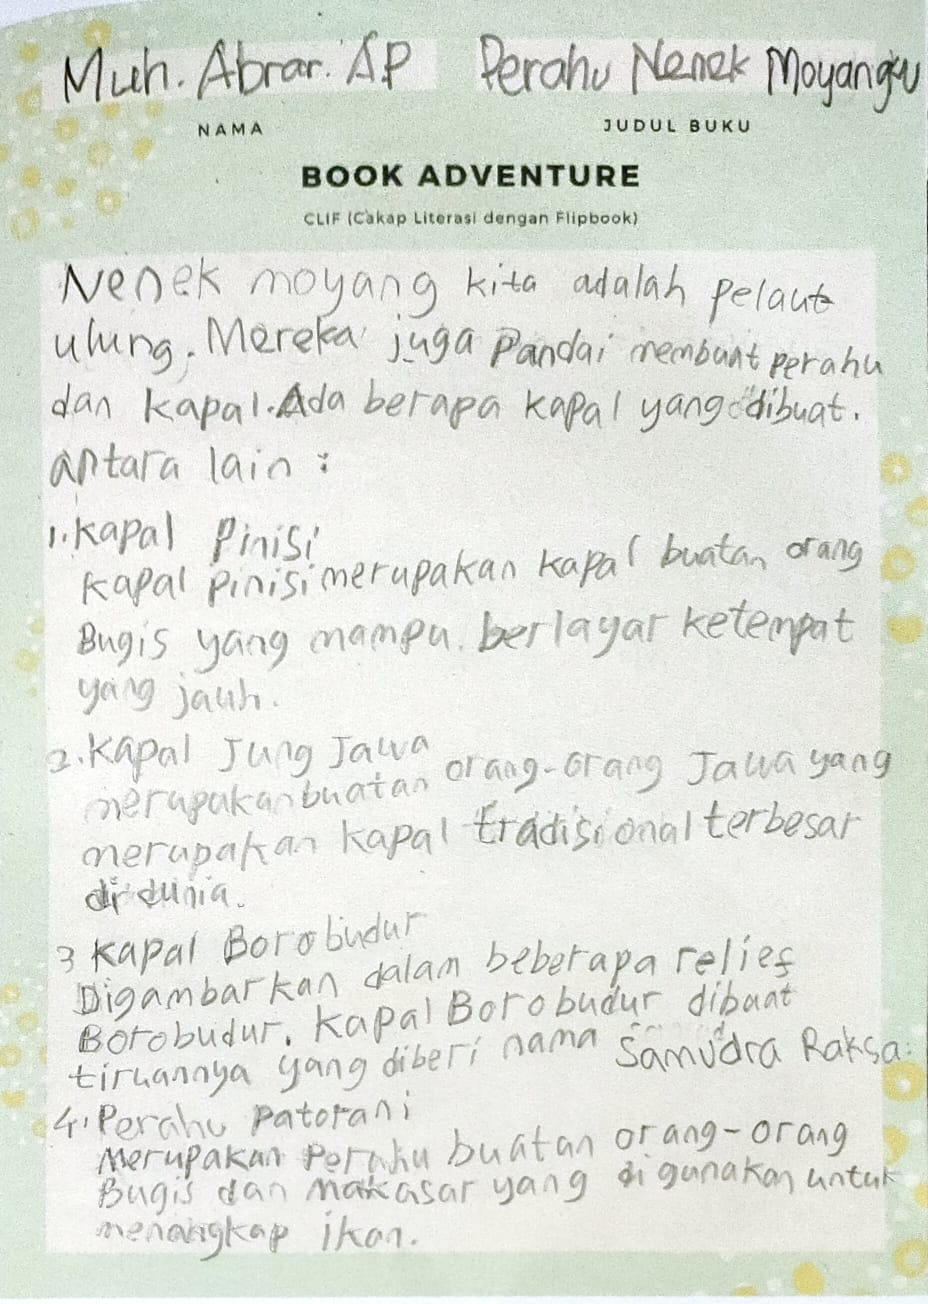 Muh. Abrar. AP Perahu Nenek Moyangku
NAMA JUDUL BUKU
BOOK ADVENTURE
CLIF (Cakap Literasi dengan Flipbook)
Nenek moyang kita adalah pelaut
ulung. Mereka juga Pandai membuat perahu
dan kapal. Ada berapa kapal yang dibuat.
antara lain :
1. Kapal Pinisi
Kapal Pinisi merupakan kapal buatan orang
Bugis yang mampu berlayar ketempat
yang jauh.
2. Kapal Jung Jawa
merupakan buatan orang-orang Jawa yang
merupakan kapal tradisional terbesar
di dunia.
3 Kapal Borobudur
Digambarkan dalam beberapa relief
Borobudur. Kapal Borobudur dibuat
tiruannya yang diberi nama Samudra Raksa.
4. Perahu Patorani
Merupakan Perahu buatan orang-orang
Bugis dan Makasar yang digunakan untuk
menangkap ikan.